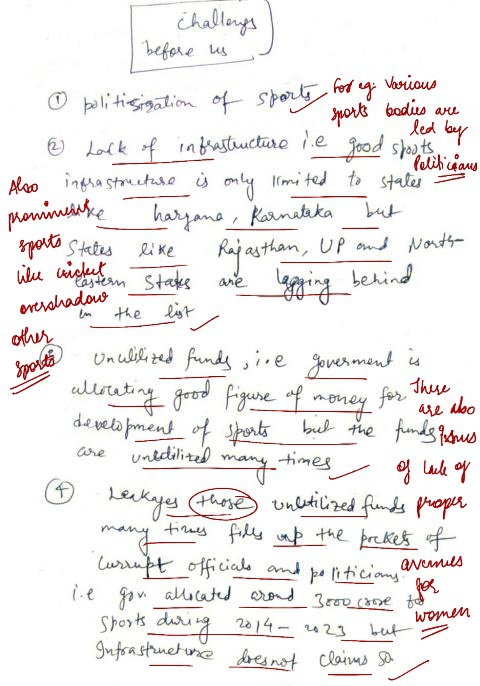 challenges
before us
① politisization of sports
② Lack of infrastructure i.e good sports
infrastructure is only limited to states
like haryana, Karnataka but
States like Rajasthan, UP and North-
eastern States are lagging behind
in the list
③ Unutilized funds, i.e goverment is
allocating good figure of money for
development of sports but the funds
are unutilized many times
④ Leakages those unutilized funds
many times fills up the pockets of
currupt officials and politicians.
i.e gov. allocated arond 3000 crore for
Sports during 2014 - 2023 but
Infrastructure doesnot claims so
For eg. Various
sports bodies are
led by
Politicians
Also
prominent
sports
like cricket
overshadow
other
sports
There
are also
issues
of lack of
proper
avenues
for
women